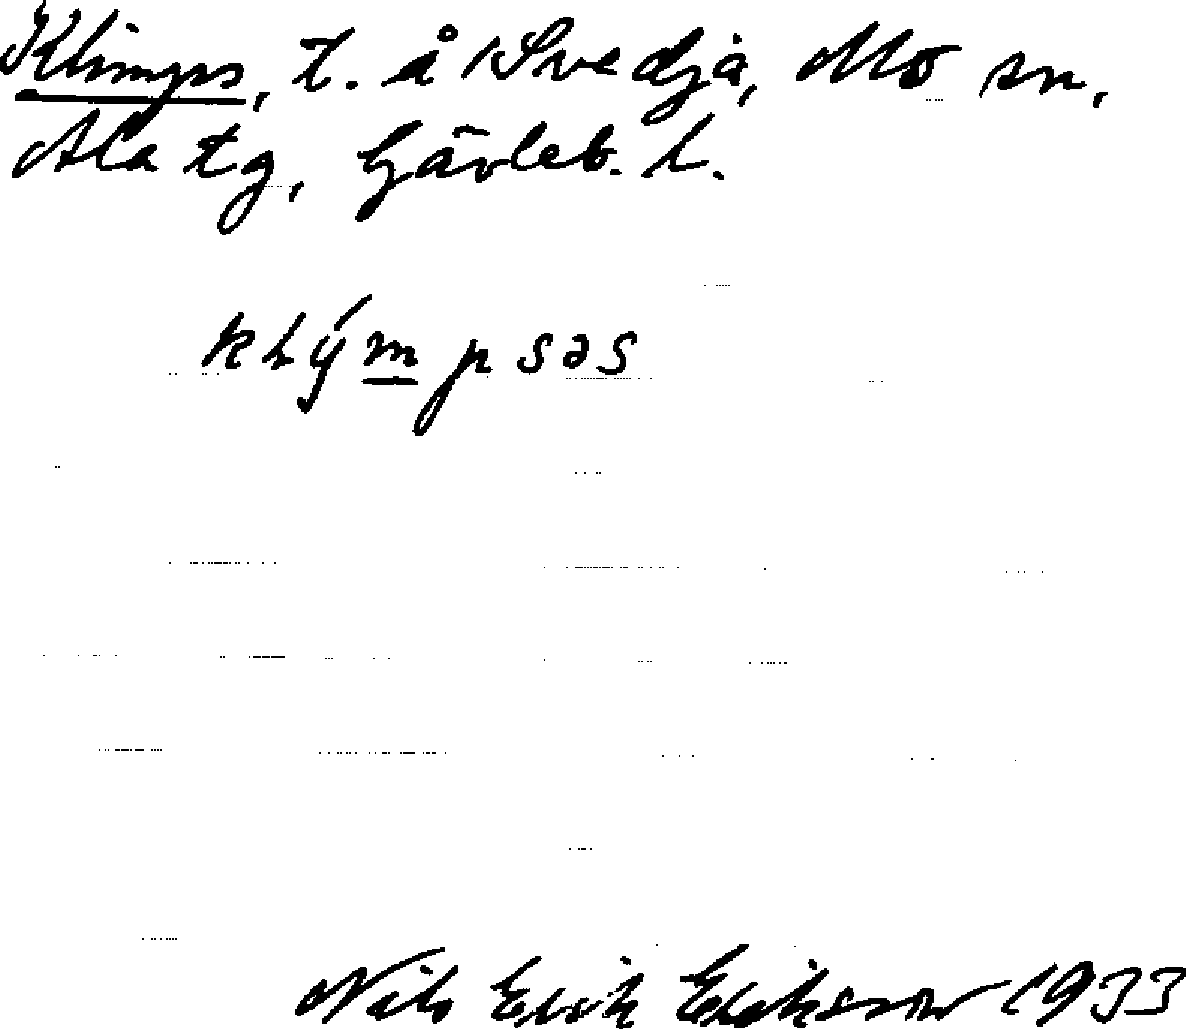 Klimps, t. å Svedja, Mo sn,
Ala tg, Gävleb. l.
klýmpsəs
Nils Erik Eriksson 1933